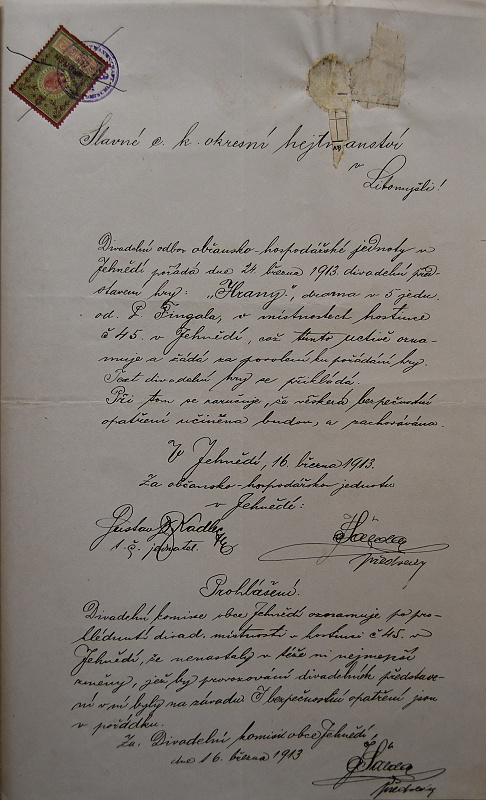 Slavné c. k. okresní hejtmanství
v
Litomyšli!
Divadelní odbor občansko-hospodářské jednoty v
Jehnědí pořádá dne 24 března 1913 divadelní před-
stavení hry: „Hrany“, drama v 5 jedn.
od. P. Fingala, v místnostech hostince
č 45. v Jehnědí, což tímto uctivě ozna-
muje a žádá za povolení ku pořádání hry.
Text divadelní hry se přikládá.
Při tom se zaručuje, že veškera bezpečnostní
opatření učiněna budou, a zachovávána.
V Jehnědí, 16. března 1913.
Za občansko-hospodářskou jednotu
v Jehnědí:
Gustav Kadlec
t. č. jednatel.
předseda
Prohlášení.
Divadelní komise obce Jehnědí oznamuje po pro-
hlédnutí divad. místností v hostinci č 45. v
Jehnědí, že nenastaly v téže ni nejmenší
změny, jež by provozování divadelních představe-
ní v ní byly na závadu. I bezpečnostní opatření jsou
v pořádku.
Za. Divadelní komisi obce Jehnědí,
dne 16. března 1913
předseda